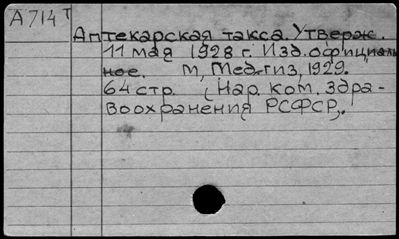 А714Т
Аптекарская такса. Утверж.
11 мая 1928 г. Изд. официаль
ное. М, Медгиз, 1929.
64 стр. (Нар. ком. здра-
воохранения РСФСР).